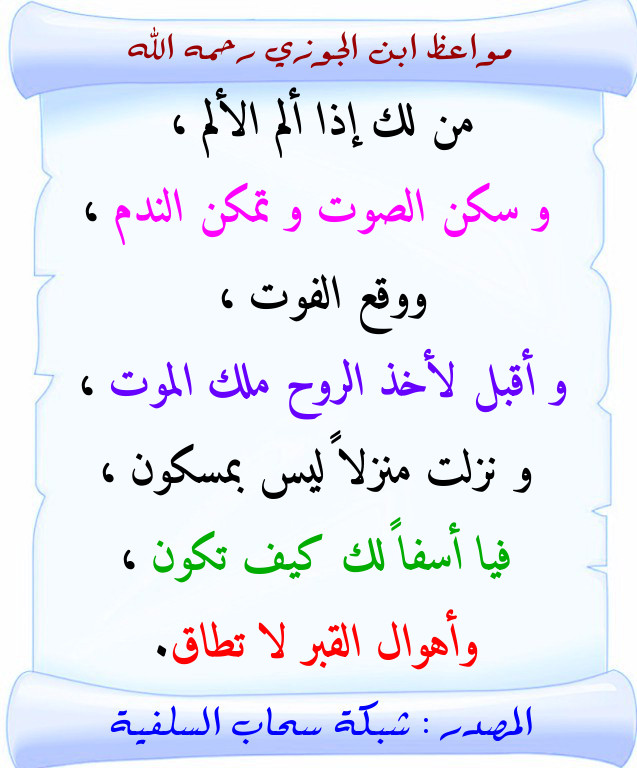 مواعظ ابن الجوزي رحمه الله
من لك إذا ألم الألم ،
و سكن الصوت و تمكن الندم ،
ووقع الفوت ،
و أقبل لأخذ الروح ملك الموت ،
و نزلت منزلاً ليس بمسكون ،
فيا أسفاً لك كيف تكون ،
وأهوال القبر لا تطاق.
المصدر : شبكة سحاب السلفية